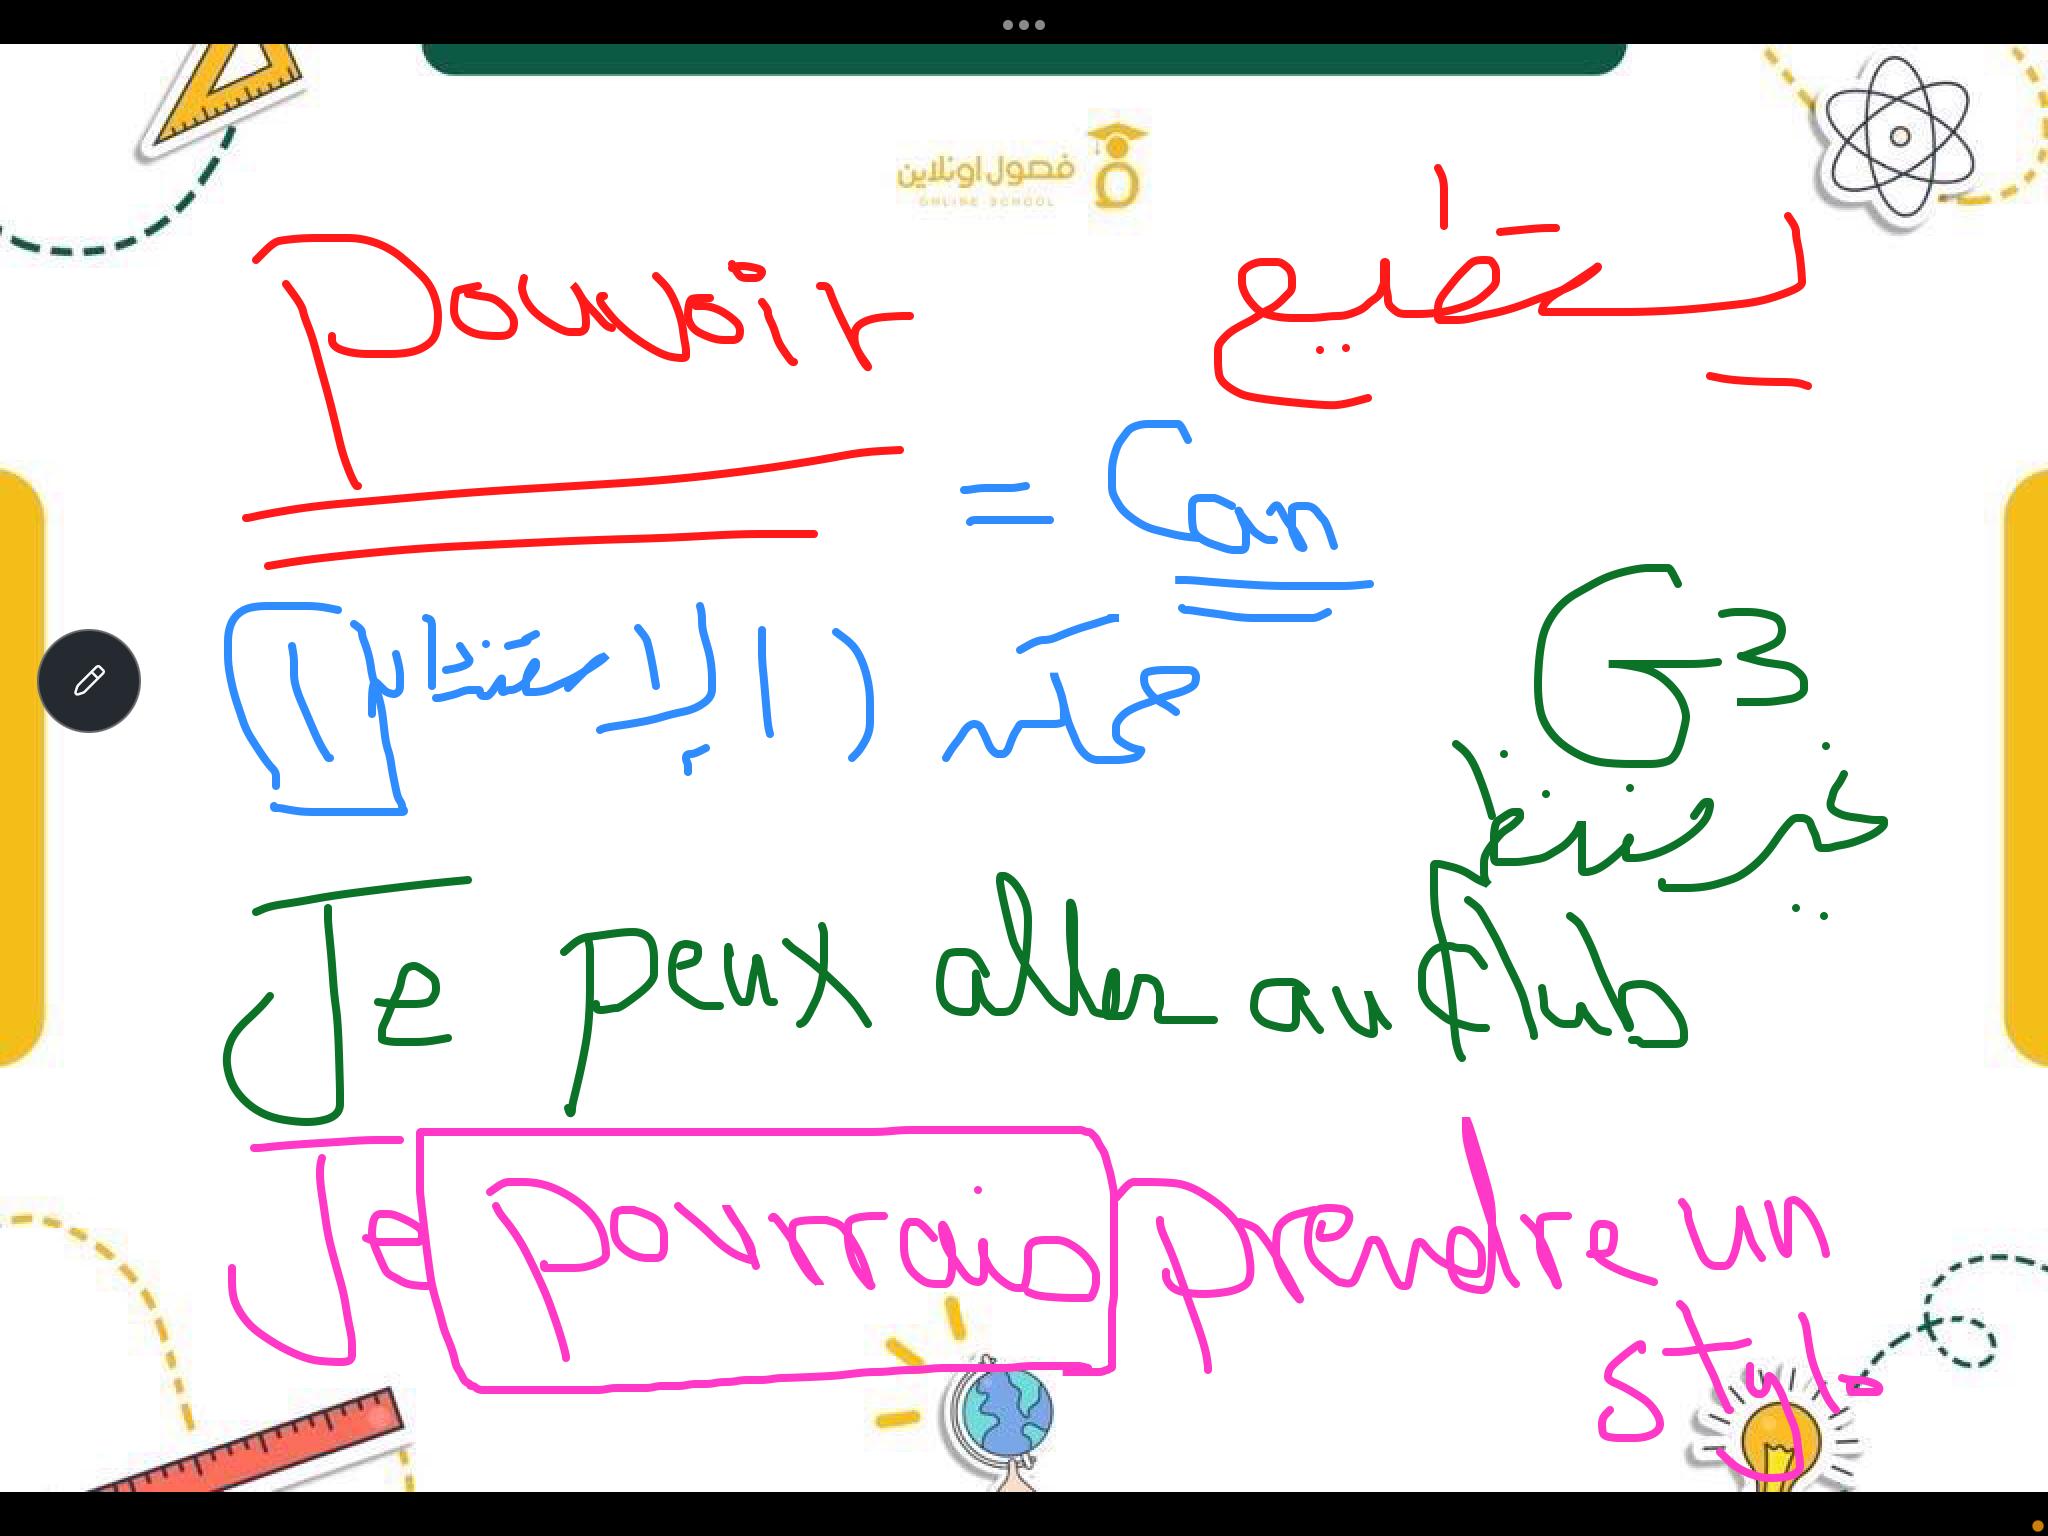 فصول اونلاين
ONLINE SCHOOL
pouvoir يستطيع
= Can
يمكنه (الاستئذان)
G3
غير منتظم
Je peux aller au club
Je pourrais prendre un
stylo